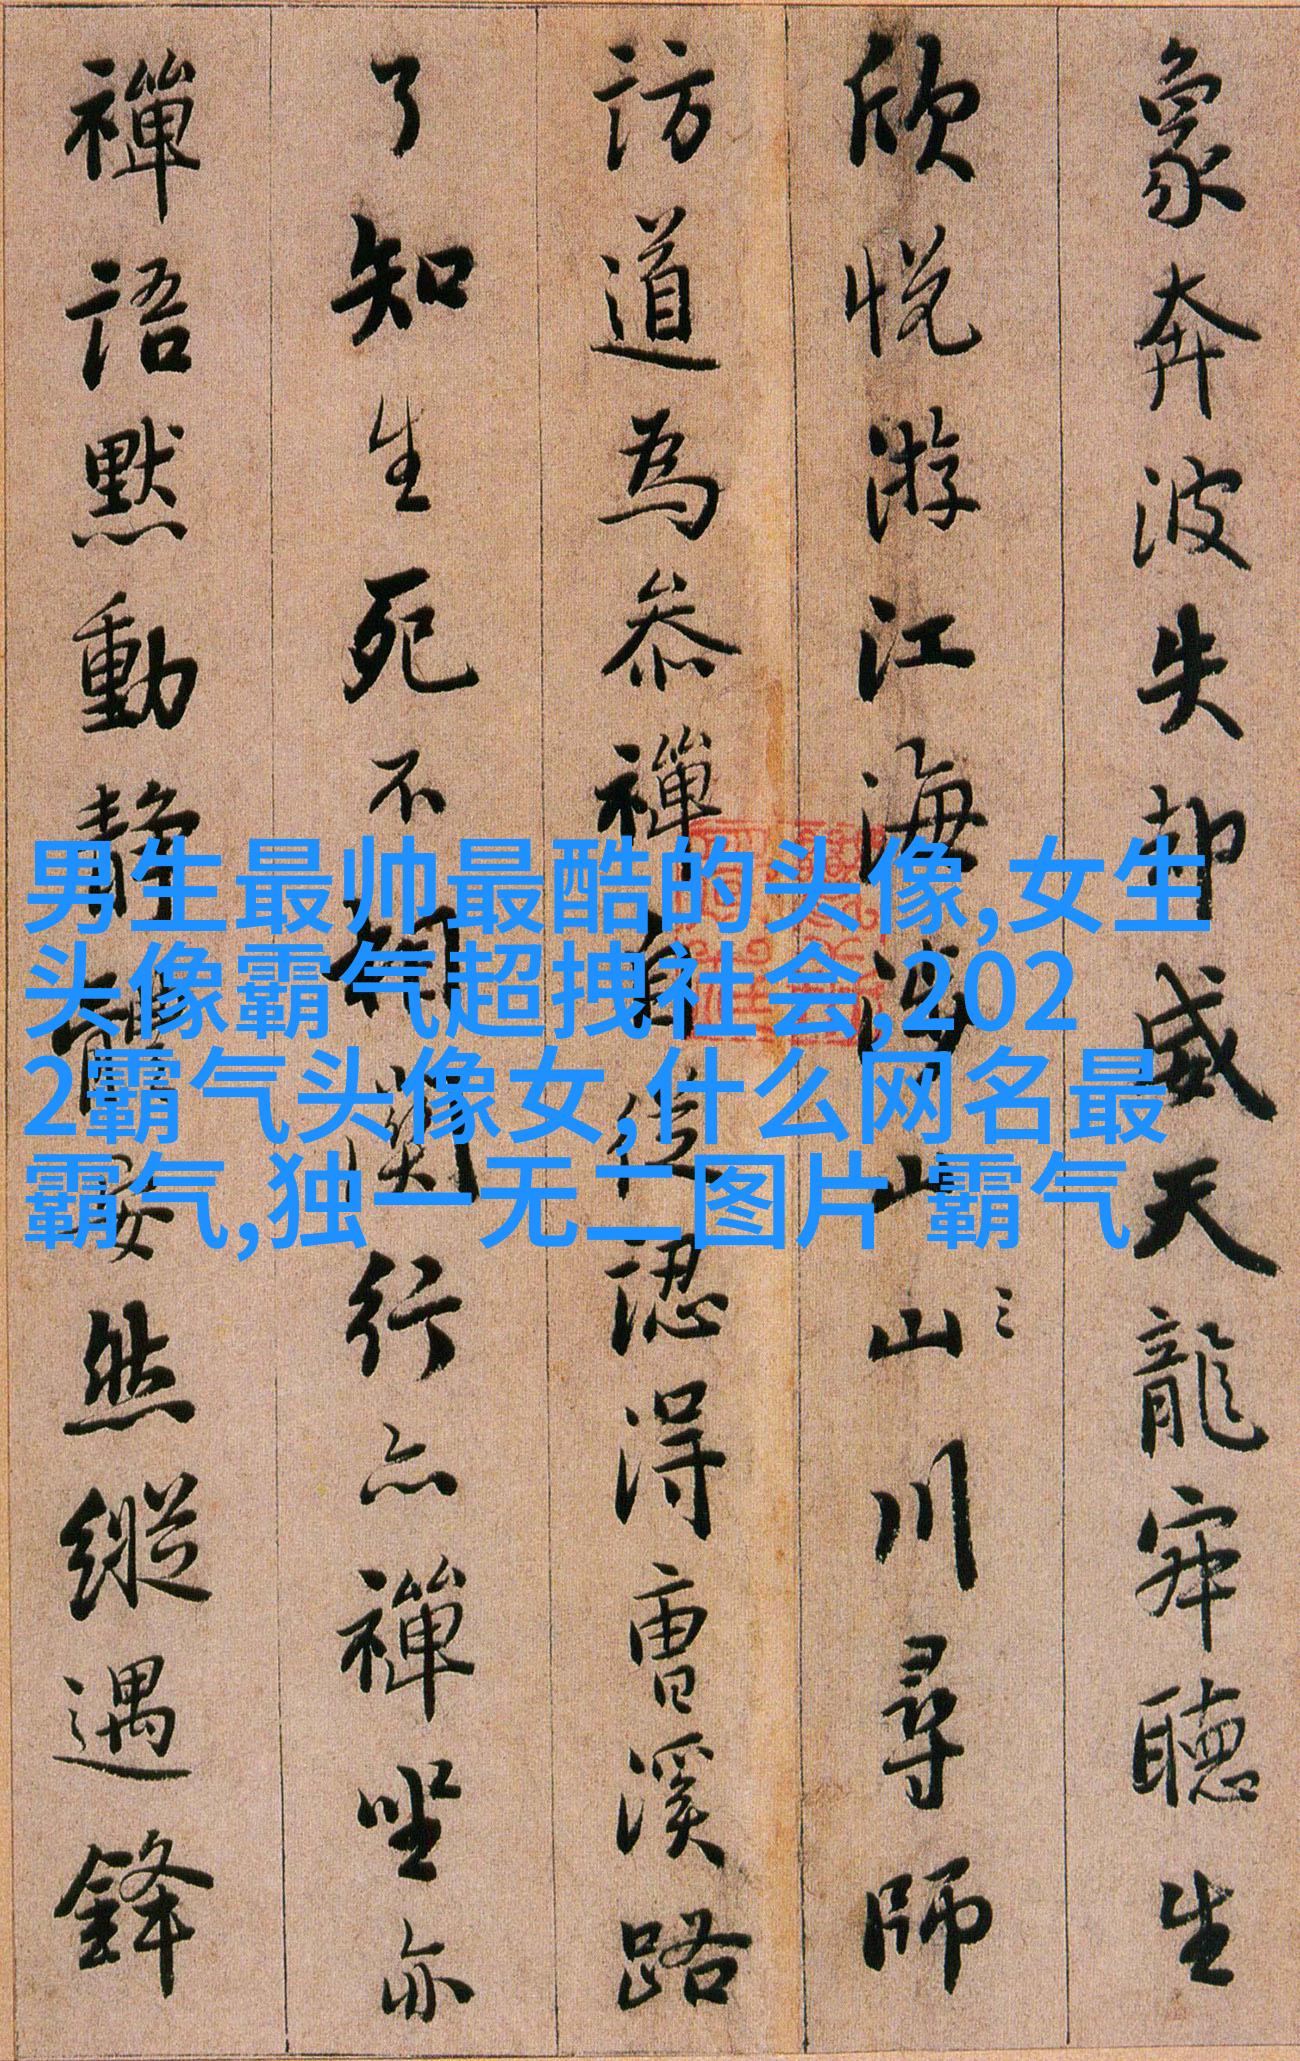 象奔波失却威天龍寂聽生
欣悅游江海涉山山川尋師
訪道為參禪自從認得曹溪路
了知生死不相關行亦禪坐亦
禪語默動靜體安然縱遇鋒
男生最帅最酷的头像,女生
头像霸气超拽社会,202
2霸气头像女,什么网名最
霸气,独一无二图片 霸气